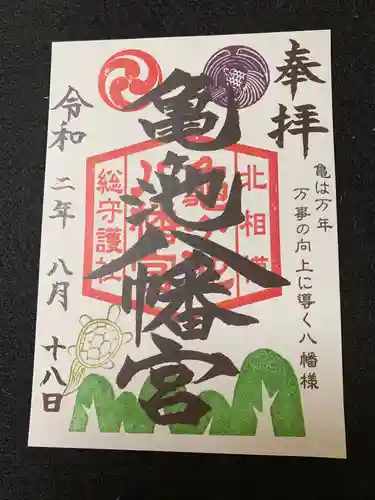 奉拝
亀は万年
万事の向上に導く八幡様
亀池八幡宮
北相模
総守護社
令和二年八月十八日